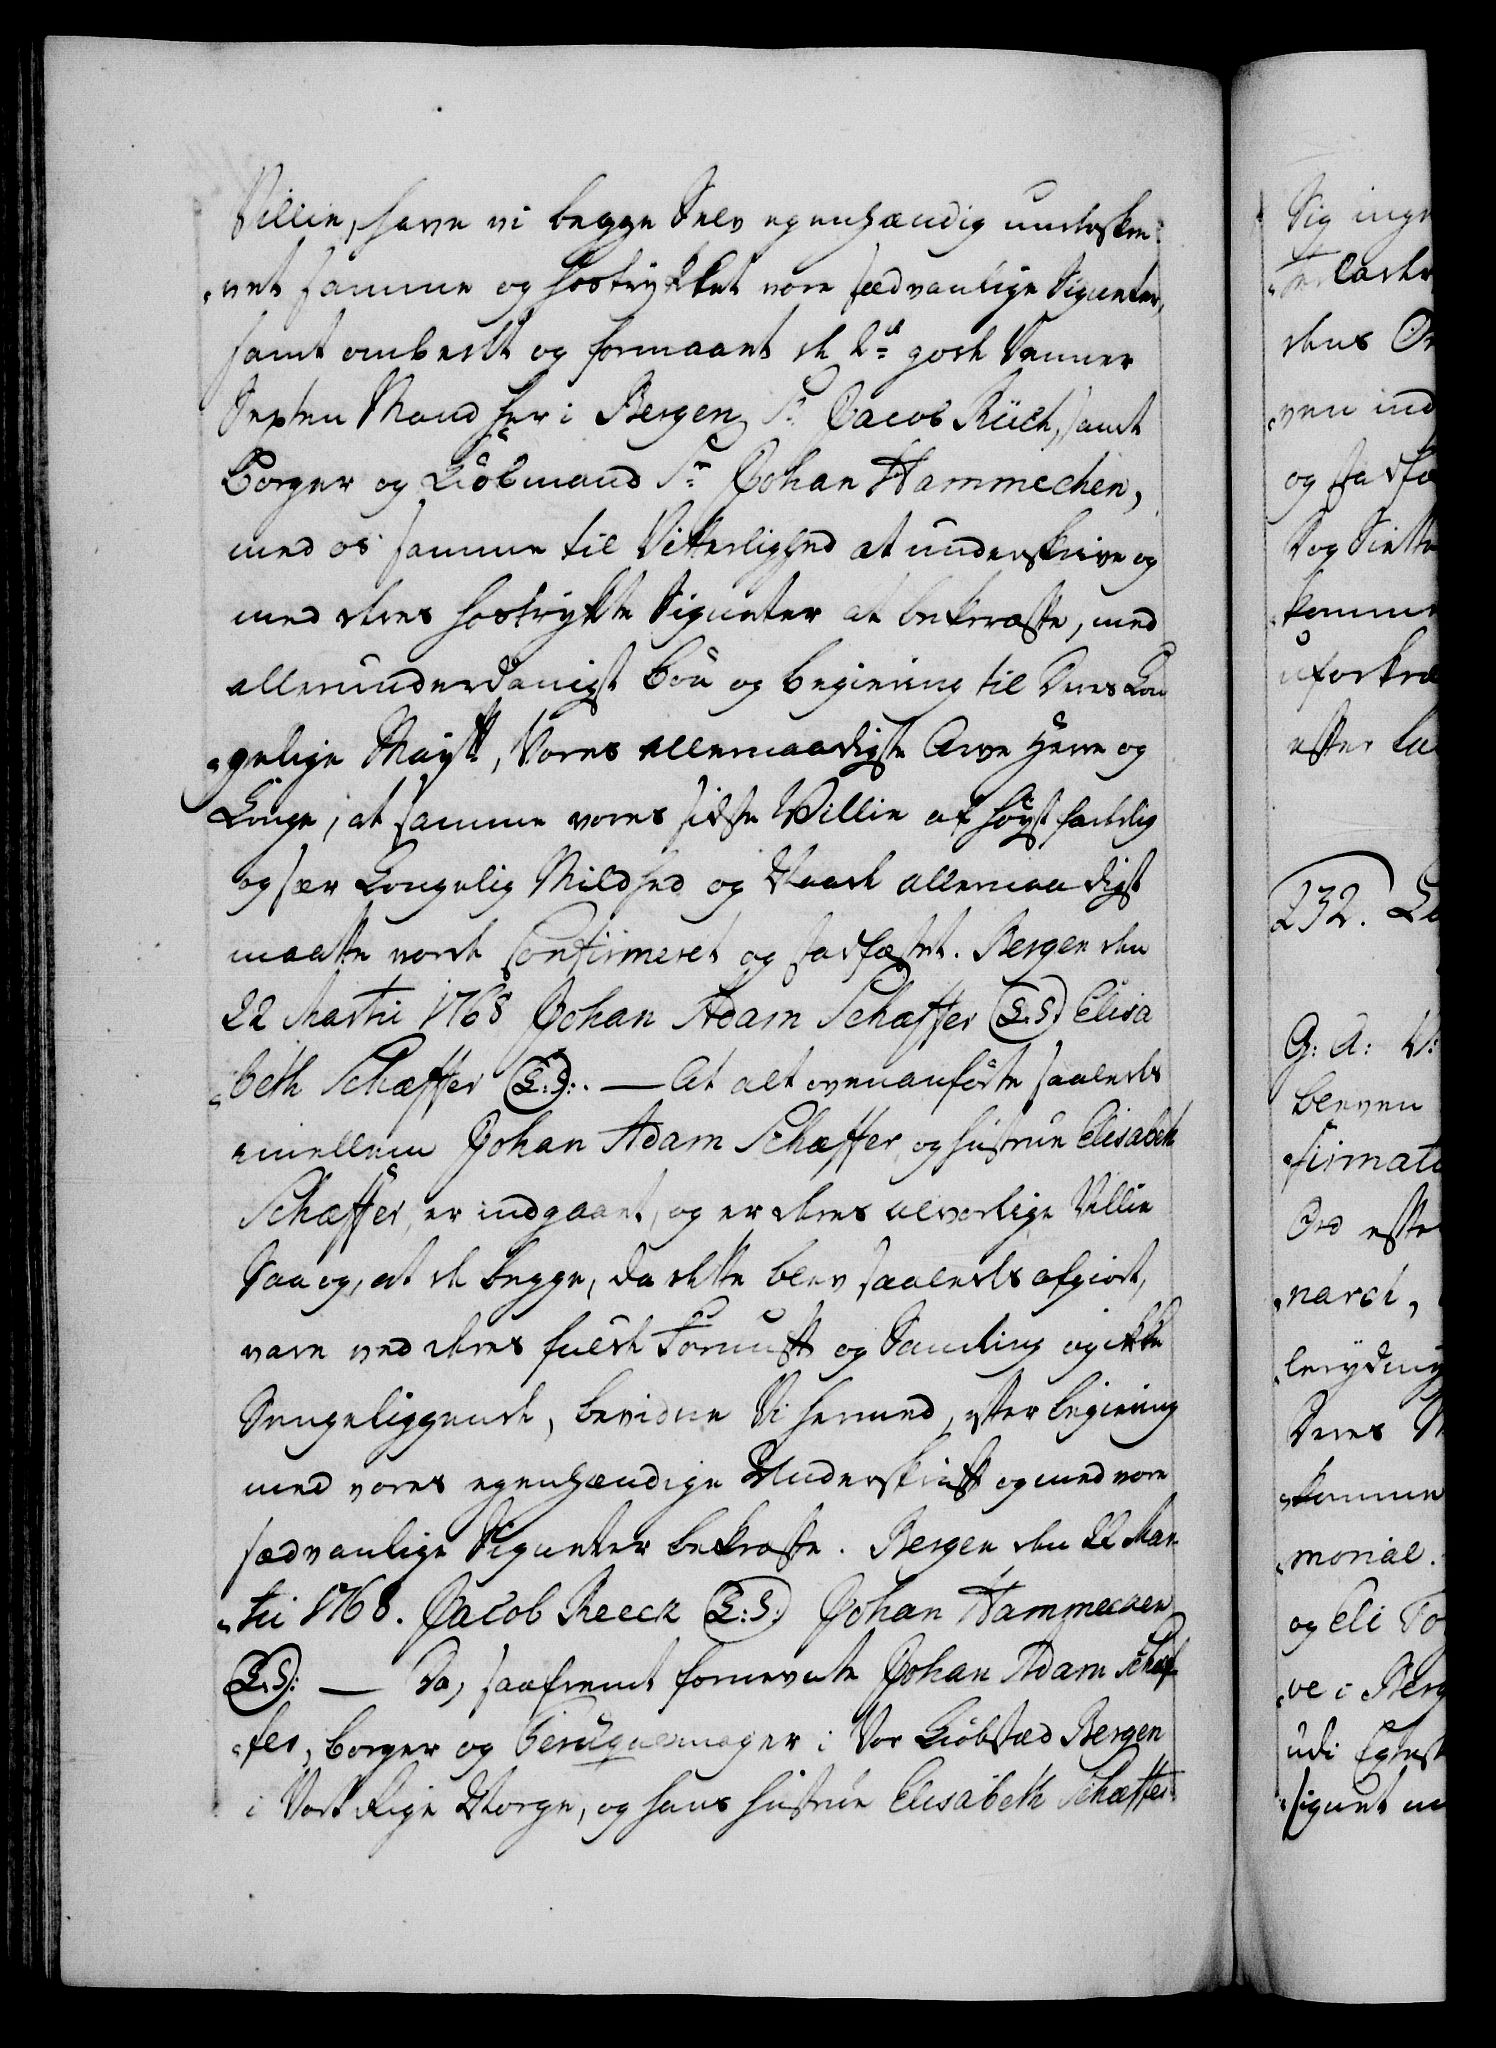 Villie, have vi begge Selv egenhændig underskre-
„vet samme og hostrykket vore sædvanlige Signeter,
samt ombedet og formaaet de 2de gode Venner
Septen Mand her i Bergen Sr Jacob Rüch, samt
Borger og Kiöbmand Sr Johan Hammechen,
med os samme til Vitterlighed at underskrive og
med deres hostrykte Signeter at bekræfte, med
allerunderdanigst Bön og begiering til Deres Kon
„gelige Mayst, Vores allernaadigste Arve Herre og
Konge, at samme vores sidste Villie af höyst faderlig
og sær Kongelig Mildhed og Naade allernaadigst
maatte vorde Confirmeret og stadfæstet. Bergen den
22 Martii 1768 Johan Adam Schæffer (L.S.) Elisa
„beth Schæffer (L:S:). — At alt ovenanförte saaledes
imellem Johan Adam Schæffer, og hustrue Elisabeth
Schæffer, er indgaaet, og er deres alvorlige Villie
Saa og, at de begge, da dette blev saaledes afgiort,
vare ved deres fulde Fornuft og Samling og ikke
Sengeliggende, bevidne Vi hermed, efter begiering
med vores egenhændige Underskrift og med vore
sædvanlige Signeter bekræfte. Bergen den 22 Mar-
„tii 1768. Jacob Reeck (L:S:) Johan Hammecken
(L.S): — Da, saafremt fornevnte Johan Adam Schæf-
„fer, borger og Peruquemager i Vor Kiöbstæd Bergen
i Vort Rige Norge, og hans hustrue Elisabeth Schæffer
Sig inge
dens
ven ind
og stadfæ
Dog Sætte
komme
uforkræ
efter
232.
G: A: V:
bleven
„firmati
Ord efte
narch,
Deres M
„komme
„morial.
og Eli
ve i Berg
udi
signet